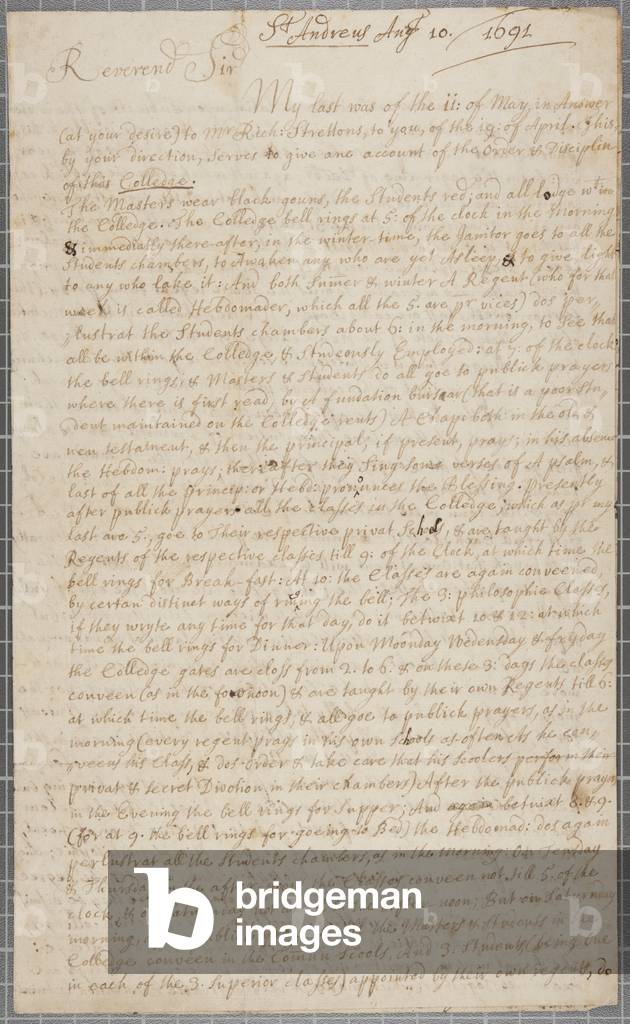 St Andreus Augt 10. 1691
Reverend Sir
My last was of the 11: of May, in Answer
(at your desire) to Mr Rich: Strettons, to you, of the 19: of April. This,
by your direction, serves to give ane account of the Order & Disciplin
of this Colledge.
The Masters wear black gouns, the Students red; and all lodge wtin
the Colledge. The Colledge bell rings at 5: of the clock in the morning
& immediatly there-after, in the winter-time, the Janitor goes to all the
Students chambers, to Awaken any who are yet Asleep, & to give light
to any who lake it: And both Sumer & winter A Regent (who for that
week is called Hebdomader, which all the 5. are pr vices) dos per,
lustrat the Students chambers about 6: in the morning, to See that
all be within the Colledge, & Studeously Employed: at 7: of the clock
the bell rings, & Masters & Students do all goe to publick prayers
where there is first read, by A fundation bursar (that is a poor Stu,
dent maintained on the Colledge rents) A Chapt both in the old &
new testament, & then the principal, if present, prays; in his absence
the Hebdom: prays; ther after they Sing some verses of A psalm, &
last of all the princip: or Hebd: pronounces the Blessing. presently
after publick prayers all the classes in the Colledge, which as pr my
last are 5., goe to Their respective privat Schols, & are taught by the
Regents of the respective classes till 9: of the Clock, at which time the
bell rings for Break-fast: At 10: the Classes are again conveened,
by certan distinct ways of ringing the bell; The 3: philosophie Classes,
if they wryte any time for that day, do it betwixt 10 & 12: at which
time the bell rings for Dinner: Upon Moonday Wedensday & fryday
the Colledge gates are closs from 2. to 6: & on these 3: days the classes
conveen (as in the forenoon) & are taught by their own Regents till 6:
at which time the bell rings, & all goe to publick prayers, as in the
morning (every regent prays in his own schools as often as he con,
veens his Class, & dos order & take care that his scolers perform their
privat & secret Divotion in their chambers) After the publick prayers
in the Evening the bell rings for Supper; And again betwixt 8. & 9.
(for at 9. the bell rings for goeing to Bed) the Hebdomad: dos again
perlustrat all the Students chambers, as in the morning: On Tensday
& Thursday the classes conveen not till 5: of the
clock, & on noon; But on Saturnday
morning, the Masters & Students in
Colledge conveen in the Comun Scools, And 3. Students (being one
in each of the 3. Superior classes) appointed by their own regents, do
bridgeman
images